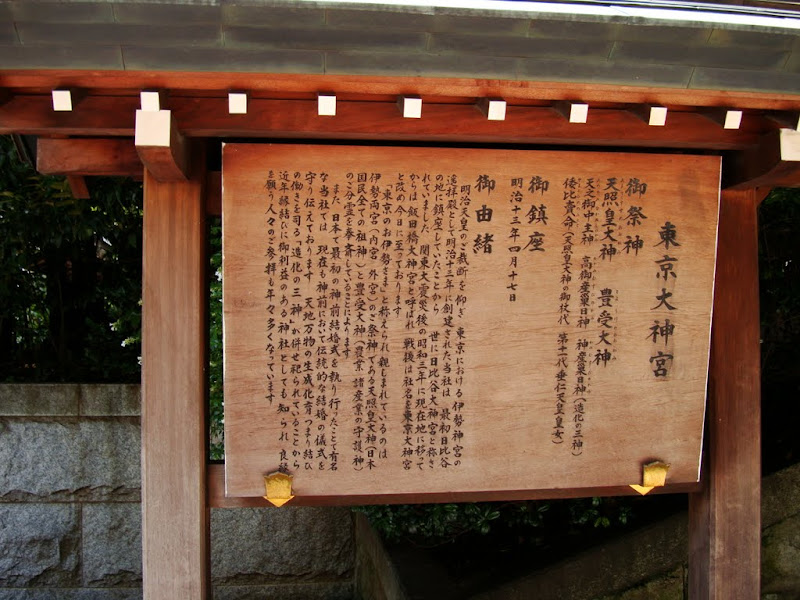 東京大神宮
御祭神
天照皇大神 豊受大神
天之御中主神 高御産巣日神 神産巣日神(造化の三神)
倭比賣命(天照皇大神の御杖代 第十一代 垂仁天皇皇女)
御鎮座
明治十三年四月十七日
御由緒
明治天皇のご裁断を仰ぎ 東京における伊勢神宮の
遙拝殿として明治十三年に創建された当社は 最初日比谷
の地に鎮座していたことから 世に日比谷大神宮と称さ
れていました 関東大震災後の昭和三年に現在地に移って
からは飯田橋大神宮と呼ばれ 戦後は社名を東京大神宮
と改め今日に至っております
「東京のお伊勢さま」と称えられ 親しまれているのは
伊勢両宮(内宮 外宮)のご祭神である天照皇大神(日本
国民全ての祖神)と豊受大神(農業 諸産業の守護神)
のご分霊を奉斎していることによります
また 日本で最初の神前結婚式を執り行ったことで有名
な当社では 現在も神前において伝統的な結婚の儀式を
守り伝えております 天地万物の生成化育つまり結び
の働きを司る「造化の三神」が併せ祀られていることから
近年縁結びに御利益のある神社としても知られ 良縁
を願う人々のご参拝も年々多くなっています